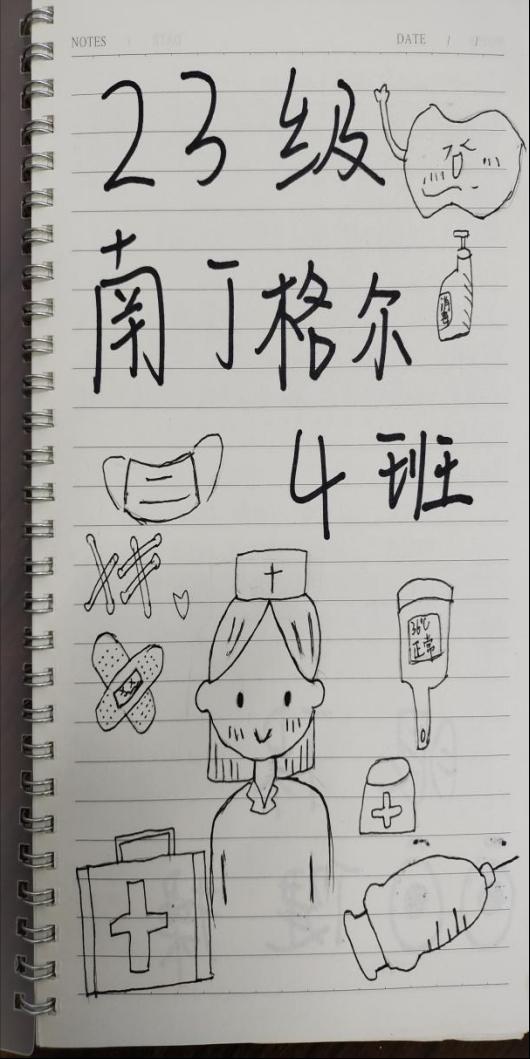 NOTES
DATE / /
23级
南丁格尔
消毒
4班
36℃
正常